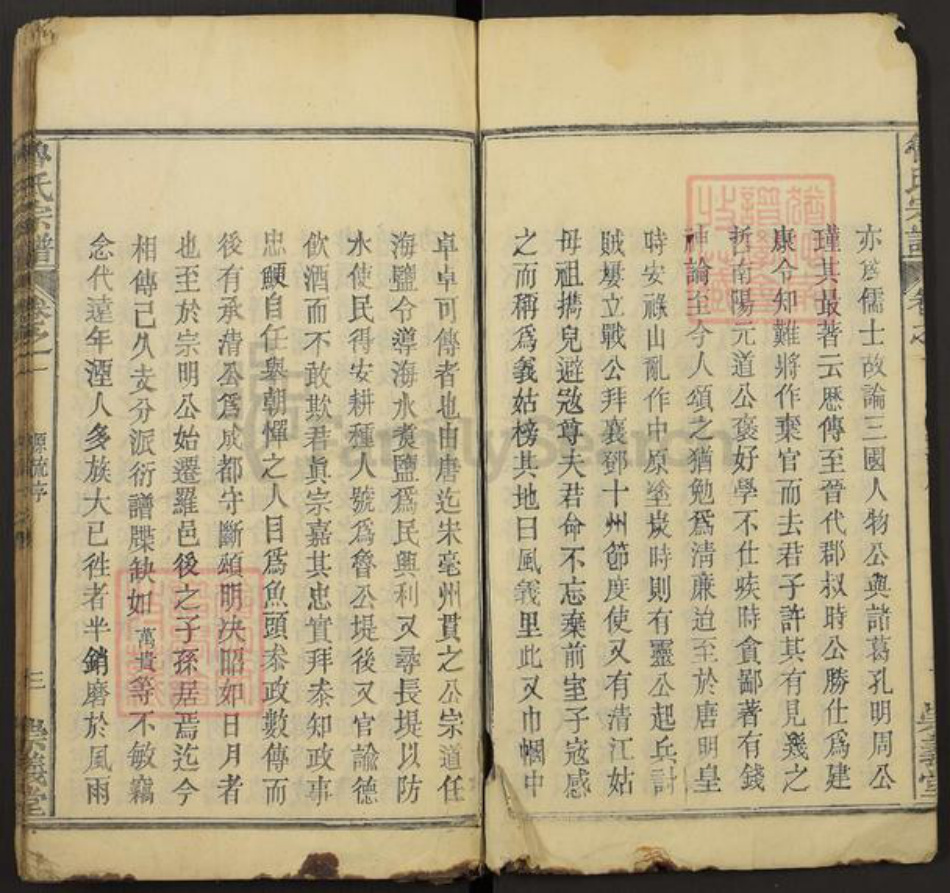 亦爲儒士故論三國人物公與諸葛孔明周公
瑾其最著云歷傳至晉代郡叔時公勝仕爲建
康令知難將作棄官而去君子許其有見幾之
哲南陽元道公褒好學不仕疾時貪鄙著有錢
神論至今人頌之猶勉爲清廉迨至於唐明皇
時安祿山亂作中原塗炭時則有靈公起兵討
賊屢立戰公拜襄鄧十州節度使又有清江姑
母祖攜兒避寇尊夫君命不忘棄前室子寇感
之而稱爲義姑榜其地曰風義里此又巾幗中
卓卓可傳者也由唐迄宋亳州貫之公宗道任
海鹽令導海水煑鹽爲民興利又尋長堤以防
水使民得安耕種人號爲魯公堤後又官諭德
飲酒而不敢欺君眞宗嘉其忠實拜叅知政事
忠鯁自任舉朝憚之人目爲魚頭叅政數傳而
後有承清公爲成都守斷頌明决昭如日月者
也至於宗明公始遷羅邑後之子孫居焉迄今
相傳已久支分派衍譜牒缺如萬貴等不敏竊
念代遠年湮人多族大已徃者半銷磨於風雨
魯氏宗譜
卷之一
源流序
三
崇義堂
FamilySearch